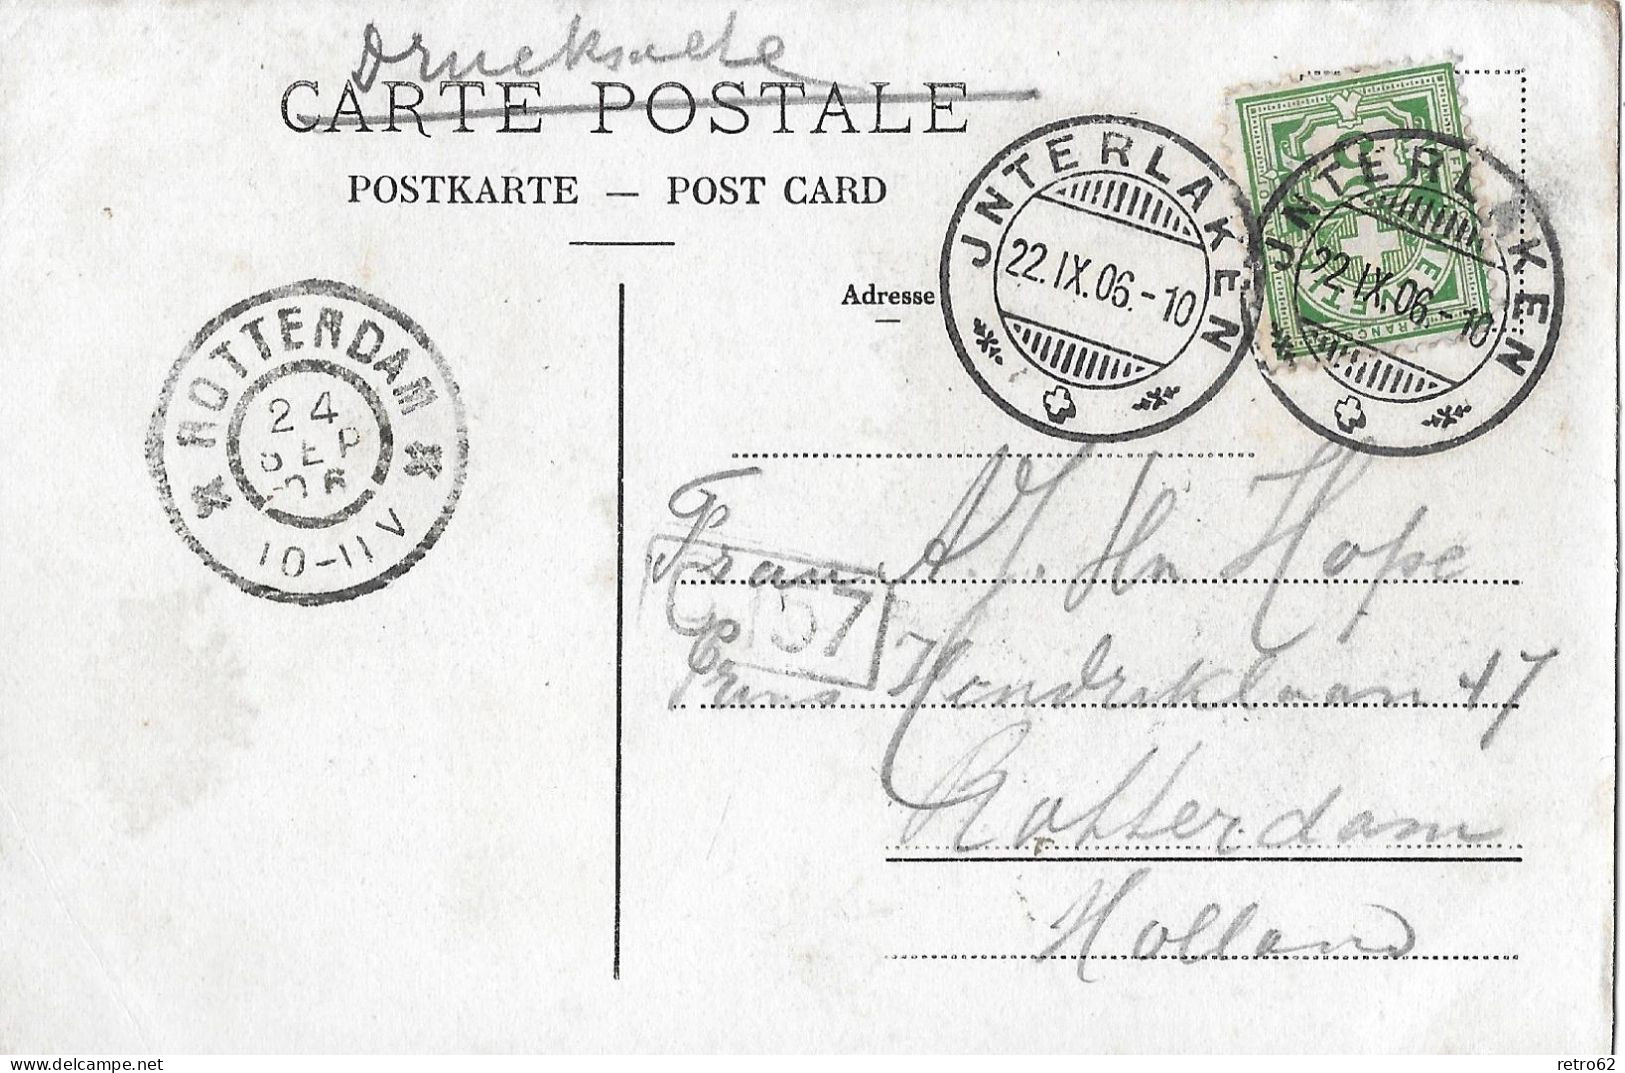 Drucksache
CARTE POSTALE
POSTKARTE — POST CARD
JNTERLAKEN
22.IX.06.-10
JNTERLAKEN
22.IX.06.-10
5
FRANCO
Adresse
ROTTERDAM
24
SEP
06
10-11V
157
Frau A. J. Hope
Prins Hendriklaan 47
Rotterdam
Holland
delcampe.net
retro62